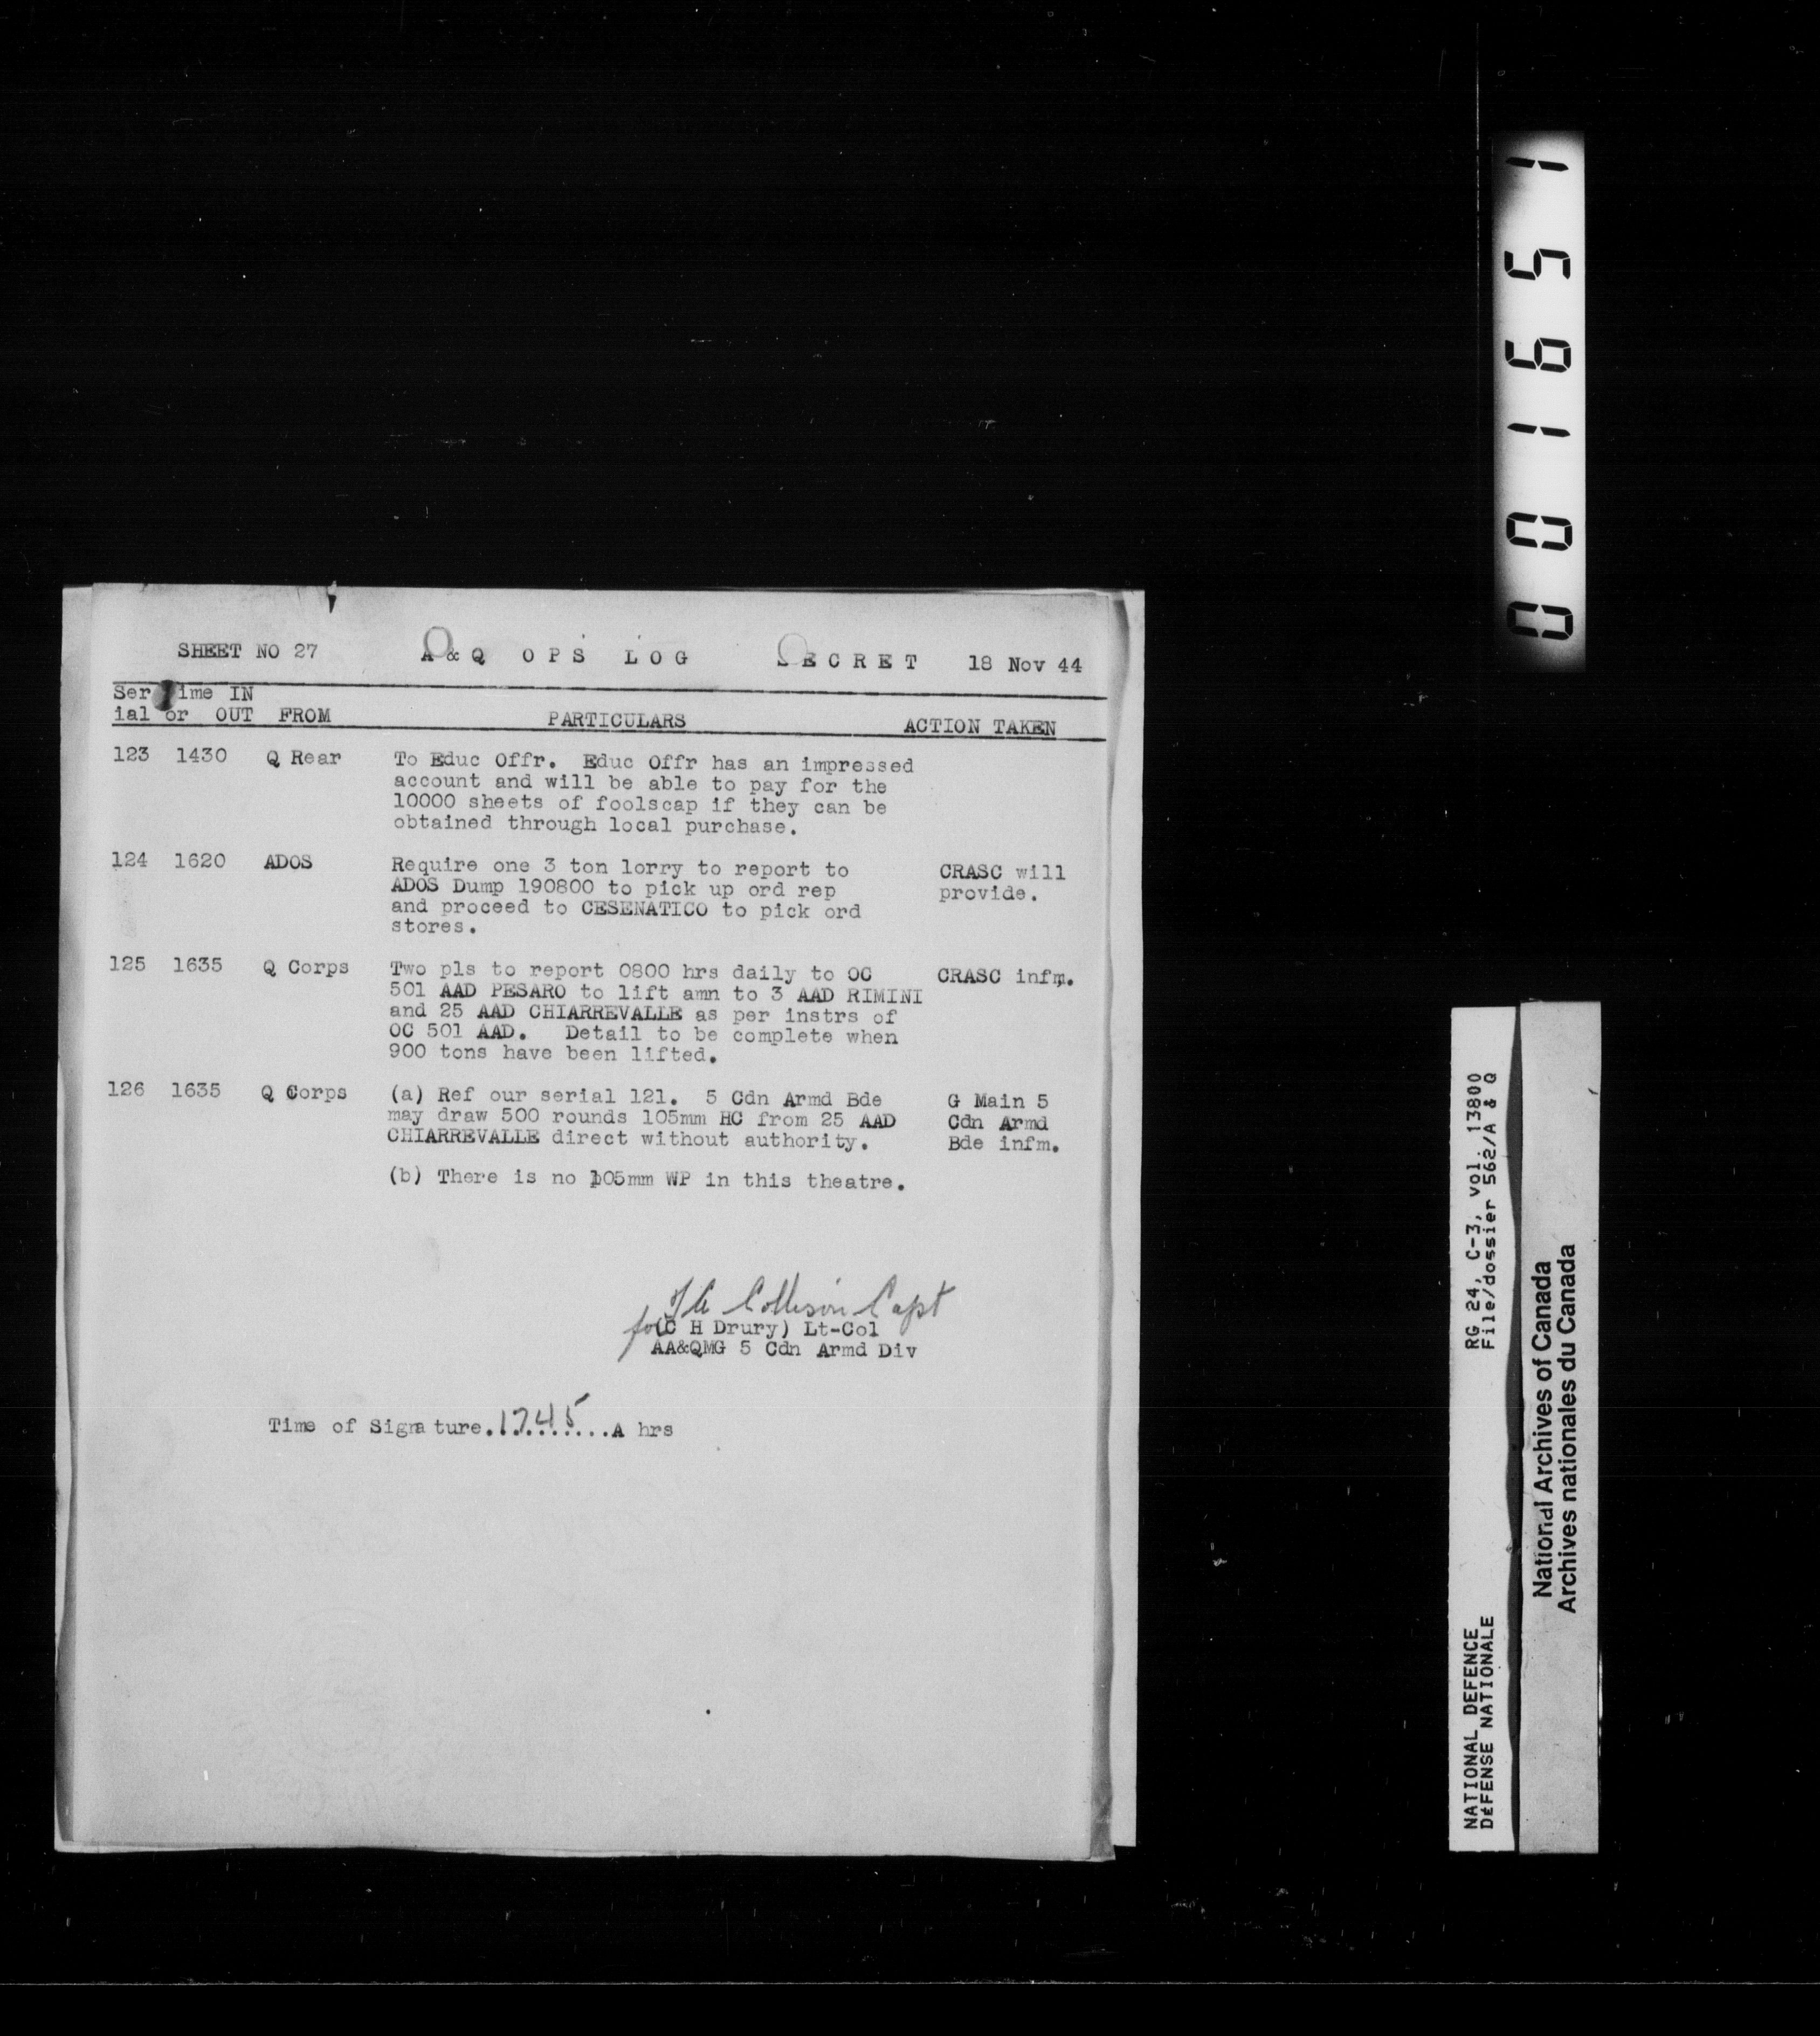 SHEET NO 27 A & Q OPS LOG SECRET 18 Nov 44
Ser Time IN
ial or OUT FROM PARTICULARS ACTION TAKEN
123 1430 Q Rear To Educ Offr. Educ Offr has an impressed
account and will be able to pay for the
10000 sheets of foolscap if they can be
obtained through local purchase.
124 1620 ADOS Require one 3 ton lorry to report to CRASC will
ADOS Dump 190800 to pick up ord rep provide.
and proceed to CESENATICO to pick ord
stores.
125 1635 Q Corps Two pls to report 0800 hrs daily to OC CRASC infm.
501 AAD PESARO to lift amn to 3 AAD RIMINI
and 25 AAD CHIARREVALLE as per instrs of
OC 501 AAD. Detail to be complete when
900 tons have been lifted.
126 1635 Q Corps (a) Ref our serial 121. 5 Cdn Armd Bde G Main 5
may draw 500 rounds 105mm HC from 25 AAD Cdn Armd
CHIARREVALLE direct without authority. Bde infm.
(b) There is no 105mm WP in this theatre.
Collison Capt
for (C H Drury) Lt-Col
AA&QMG 5 Cdn Armd Div
Time of Signature.1745.....A hrs
001651
RG 24, C-3, vol. 13800
File/dossier 562/A & Q
NATIONAL DEFENCE
DEFENSE NATIONALE
National Archives of Canada
Archives nationales du Canada